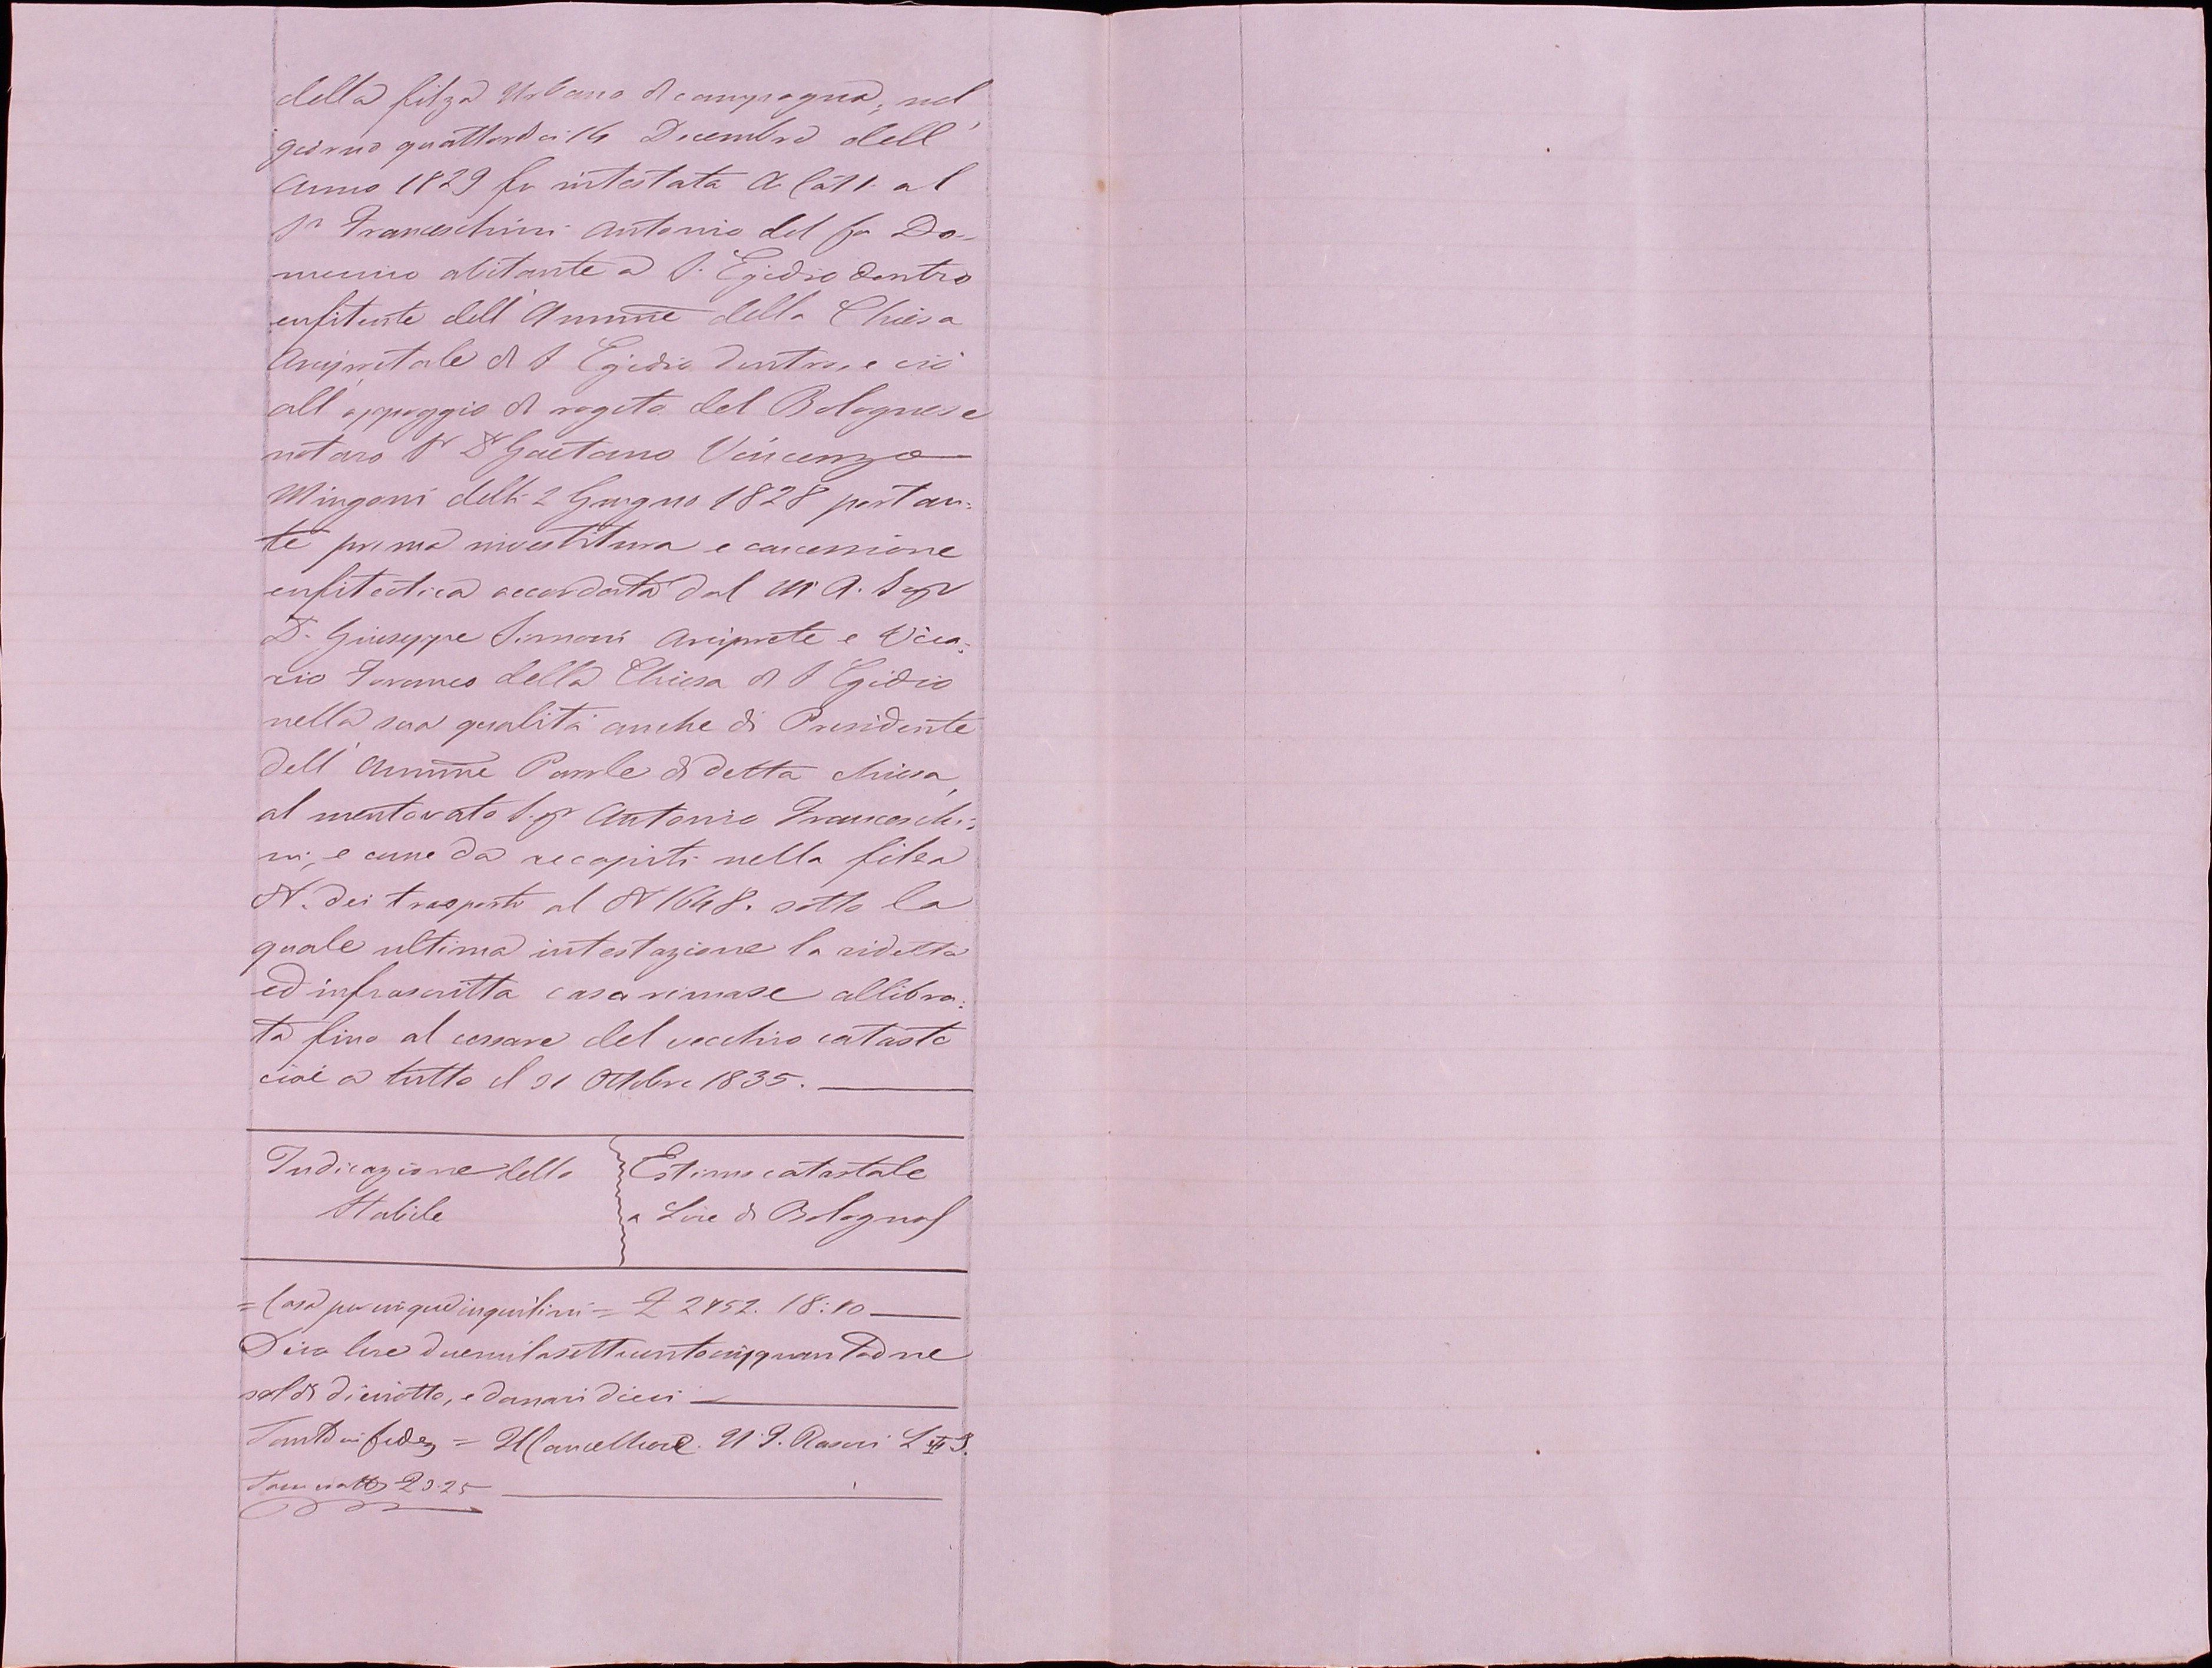 della filza Urbano di campagna, nel
giorno quattordici 14 Decembre dell'
Anno 1829 fu intestata A Cat 1. al
Sr Franceschini Antonio del fu Do-
menico abitante a S. Egidio dentro
enfiteute dell'Ammne della Chiesa
Arcipretale di S Egidio dentro, e ciò
all'appoggio di rogito del Bolognese
notaro Sr Dr Gaetano Vincenzo
Mingoni delli 2 Giugno 1828 portan:
te prima investitura e concessione
enfiteotica accordata dal M. A. Sigr
D. Giuseppe Simoni Arciprete e Vica:
rio Foraneo della Chiesa di S Egidio
nella sua qualità anche di Presidente
dell'Ammne Parrle di detta chiesa,
al mentovato Sigr Antonio Franceschi:
ni, e come da recapiti nella filza
N. dei trasporti al N 1648. sotto la
quale ultima intestazione la ridetta
ed infrascritta casa rimase allibra:
ta fino al cessare del vecchio catasto
cioè a tutto il 31 Ottobre 1835.
Indicazione dello Stabile
Estimo catastale a Lire di Bologna
= Casa per cinque inquilini = £ 2752. 18:10
Dico lire duemilasettecentocinquantadue
soldi dieciotto, e dannari dieci
Tanto in fede = Il Cancelliere. N. G. Rasori L S.
2.25